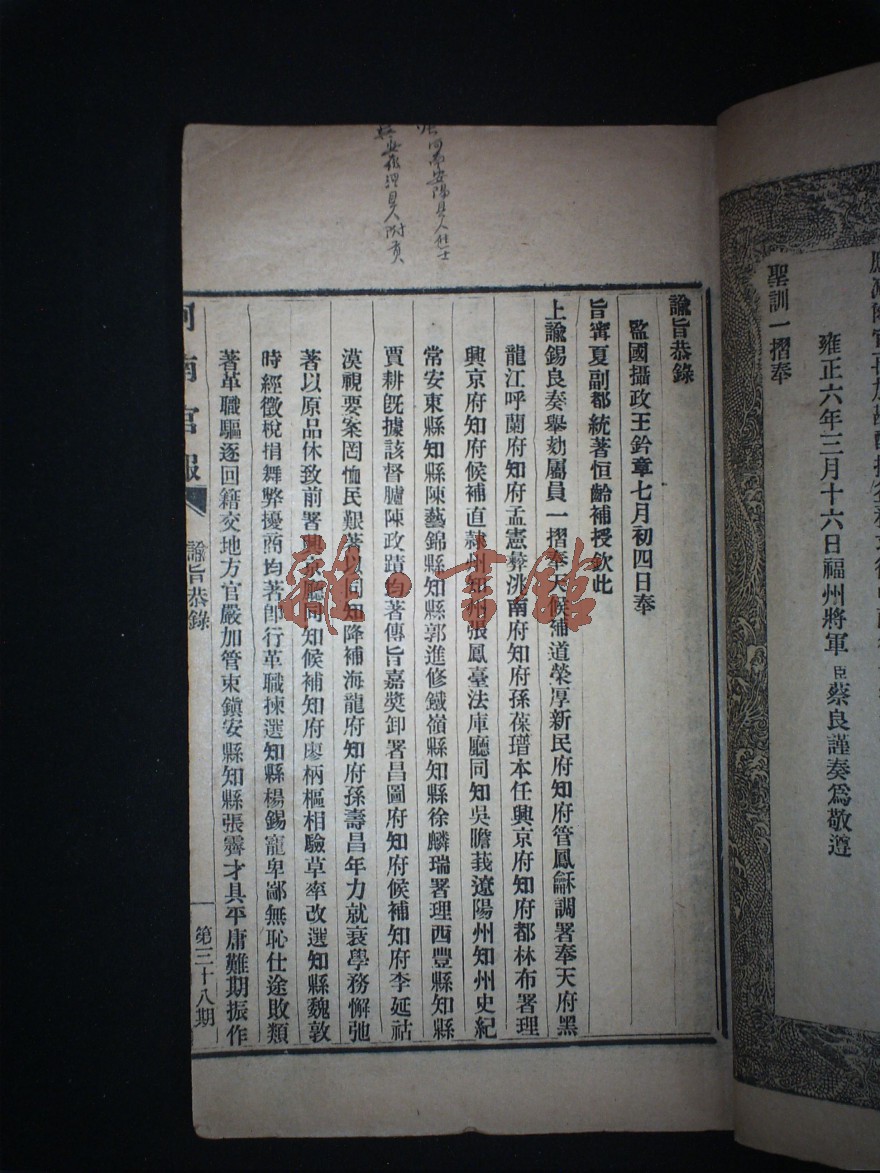 聖訓一摺奉
雍正六年三月十六日福州將軍臣蔡良謹奏爲敬遵
河南安陽縣人進士
附貢
諭旨恭錄
監國攝政王鈐章七月初四日奉
旨寗夏副都統著恒齡補授欽此
上諭錫良奏舉劾屬員一摺奉天候補道榮厚新民府知府管鳳龢調署奉天府黑
龍江呼蘭府知府孟憲彝洮南府知府孫葆瑨本任興京府知府都林布署理
興京府知府候補直隸州知州張鳳臺法庫廳同知吳瞻菼遼陽州知州史紀
常安東縣知縣陳藝錦縣知縣郭進修鐵嶺縣知縣徐麟瑞署理西豐縣知縣
賈耕旣據該督臚陳政蹟均著傳旨嘉獎卸署昌圖府知府候補知府李延祜
漠視要案罔恤民艱著以同知降補海龍府知府孫壽昌年力就衰學務懈弛
著以原品休致前署興京廳同知候補知府廖柄樞相驗草率改選知縣魏敦
時經徵稅捐舞弊擾商均著卽行革職揀選知縣楊錫寵卑鄙無恥仕途敗類
著革職驅逐回籍交地方官嚴加管束鎭安縣知縣張霽才具平庸難期振作
河南官報
諭旨恭錄
一
第三十八期
雜·書館